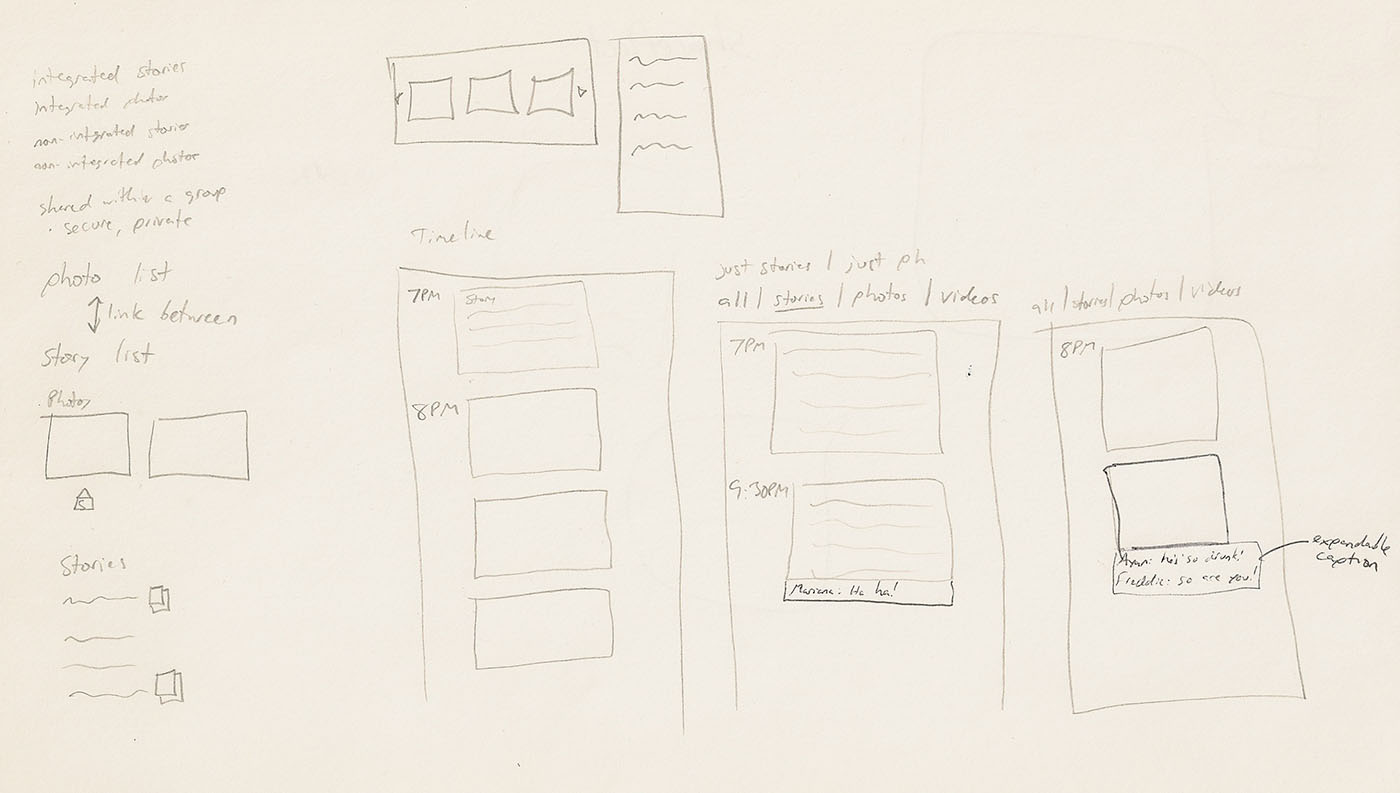 integrated stories
integrated photos
non-integrated stories
non-integrated photos
shared within a group
· secure, private
photo list
link between
story list
Photos
S
Stories
Timeline
7PM
Story
8PM
just stories / just ph
all / stories / photos / videos
7PM
9:30PM
Mariana: Ha ha!
all / stories / photos / videos
8PM
he's so drunk!
Freddie: so are you!
expandable
caption